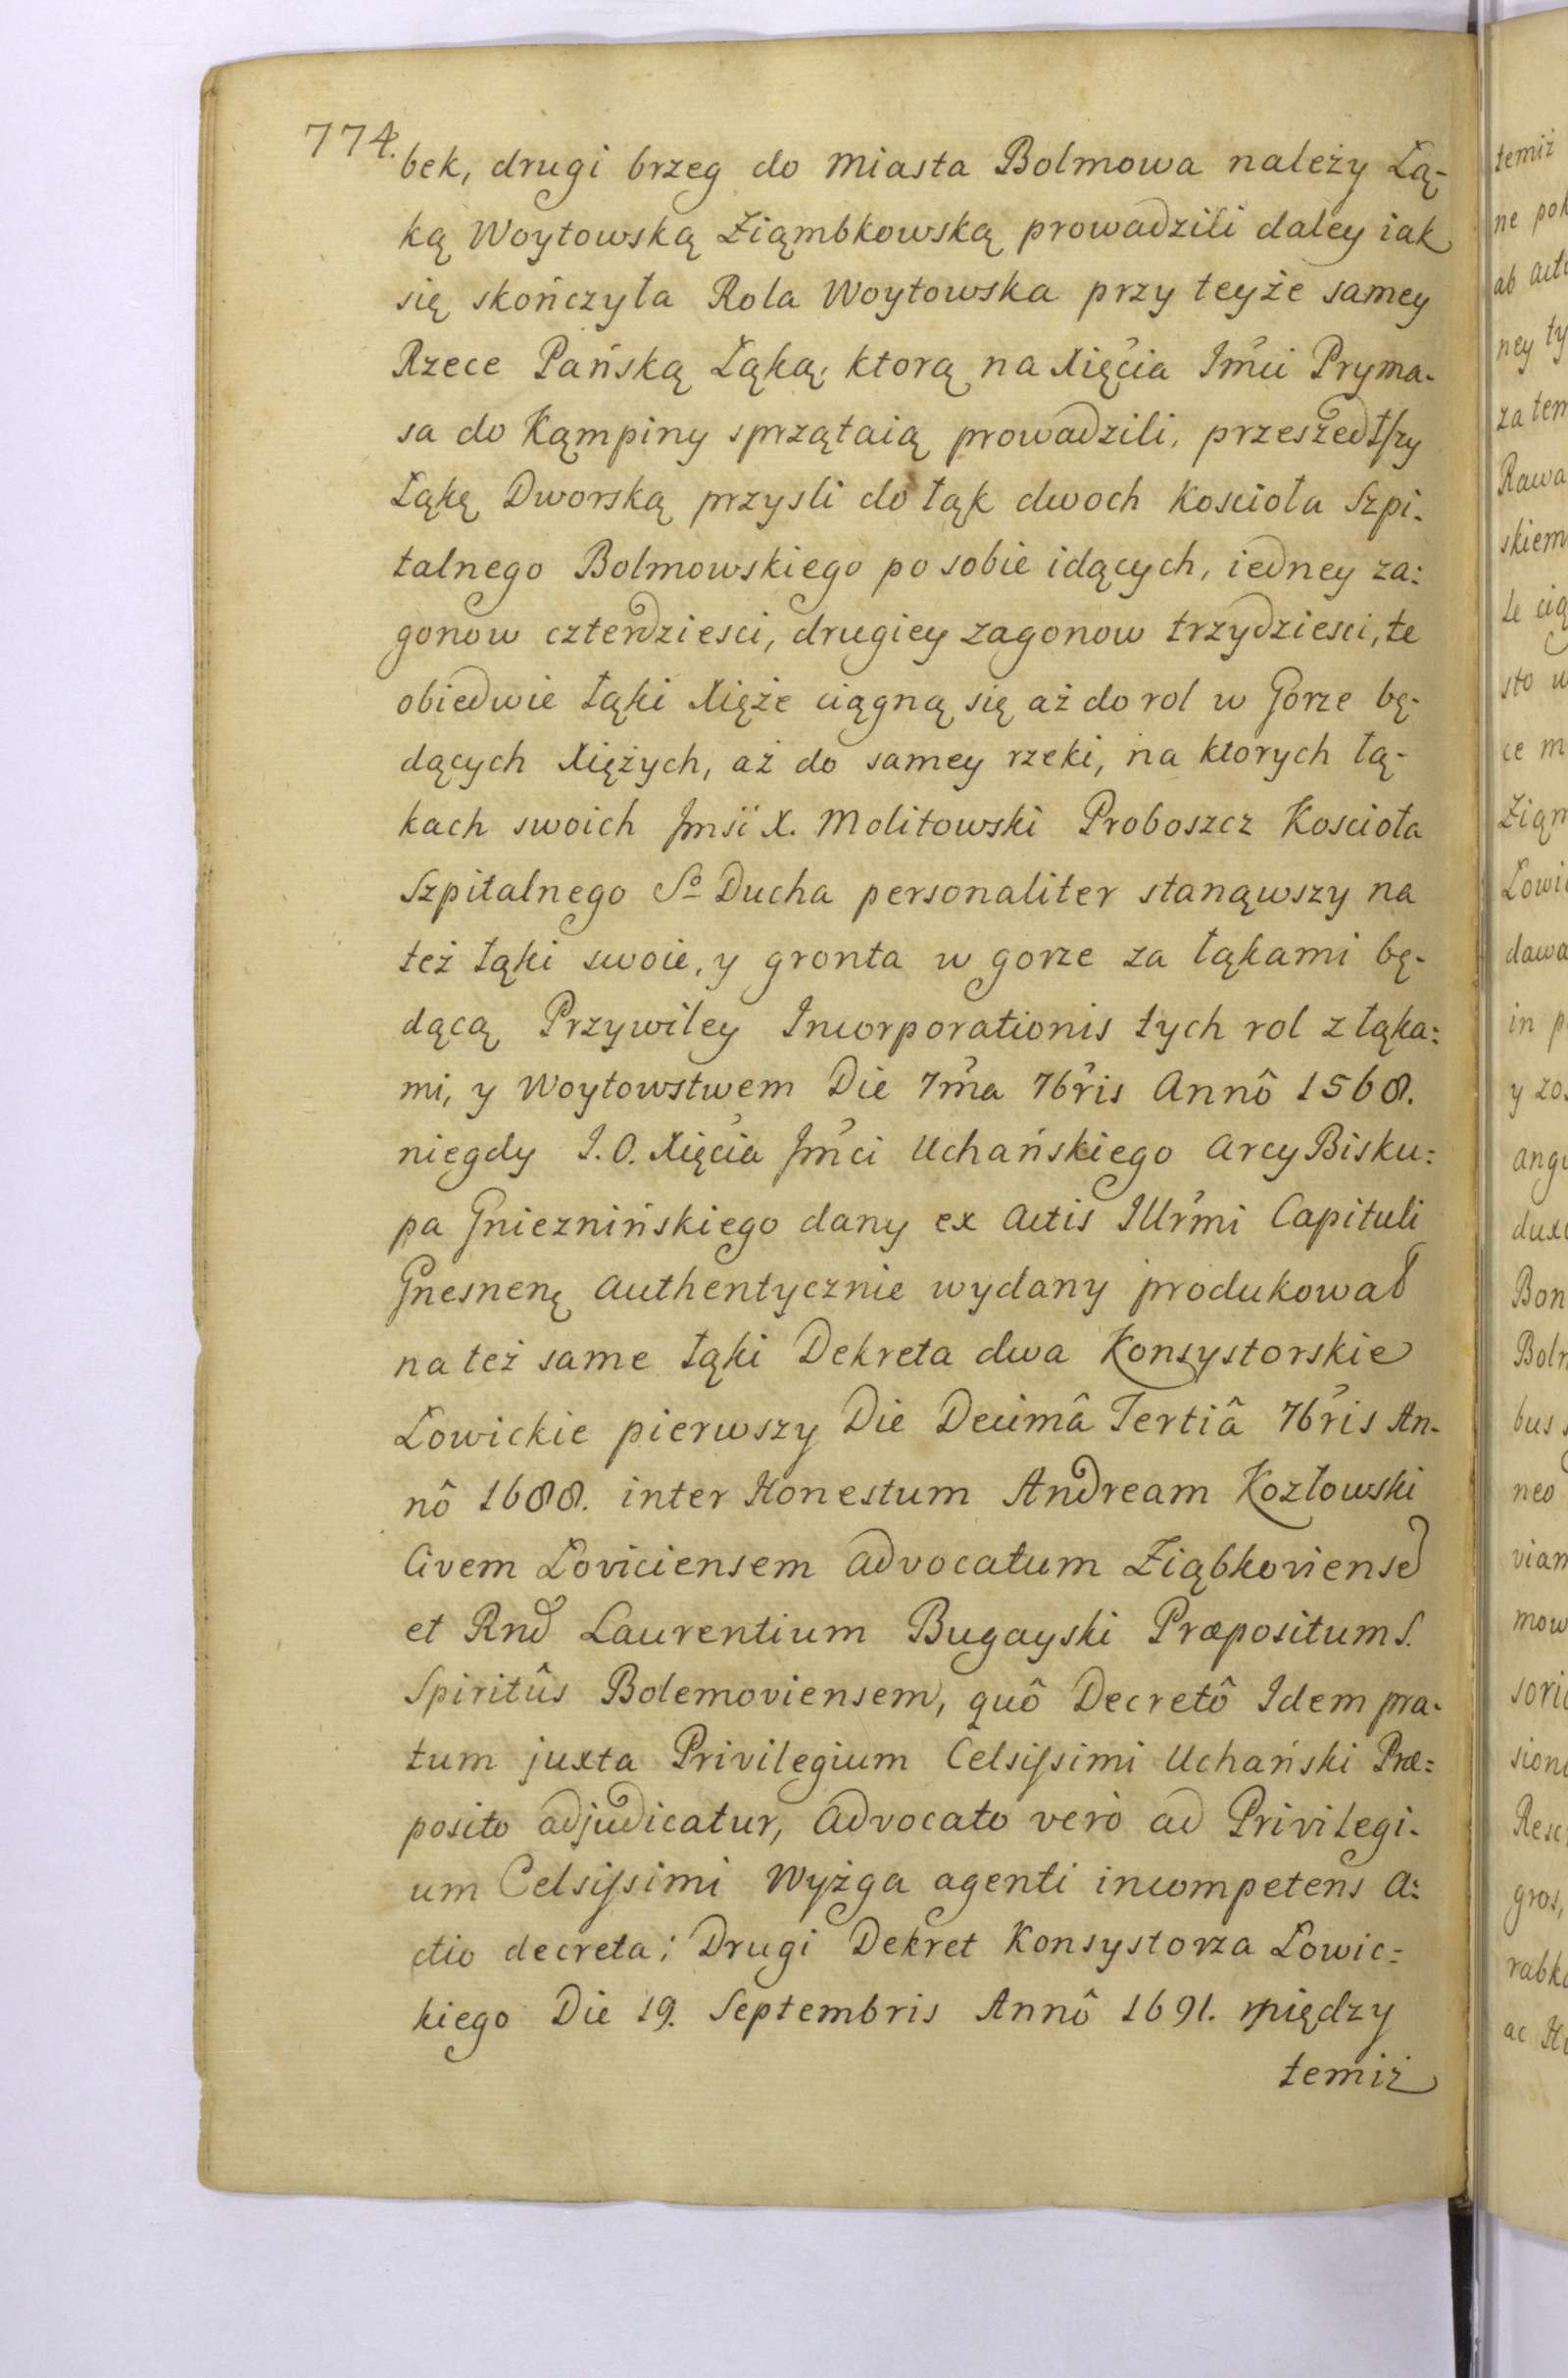 774.
bek, drugi brzeg do miasta Bolmowa należy Łą-
ką Woytowską Ziąmbkowską prowadzili daley iak
się skończyła Rola Woytowska przy teyże samey
Rzece Pańską Łąką, ktorą na Xięcia Jmci Pryma-
sa do Kąmpiny sprzątaią prowadzili, przeszedłszy
Łąkę Dworską przysli do łąk dwoch Koscioła Szpi-
talnego Bolmowskiego po sobie idących, iedney za:
gonow czterdziesci, drugiey zagonow trzydziesci, te
obiedwie łąki Xięże ciągną się aż do rol w Gorze bę-
dących Xiężych, aż do samey rzeki, na ktorych łą-
kach swoich Jmsci X. Molitowski Proboszcz Koscioła
Szpitalnego So Ducha personaliter stanąwszy na
też łąki swoie, y gronta w gorze za łąkami bę-
dącą Przywiley Incorporationis tych rol z łąka:
mi, y Woytowstwem Die 7ma 7bris Annô 1568.
niegdy J.O. Xięcia Jmci Uchańskiego Arcy Bisku:
pa Gnieznińskiego dany ex Actis Illrmi Capituli
Gnesnenę Authentycznie wydany produkował
na też same łąki Dekreta dwa Konsystorskie
Łowickie pierwszy Die Decimâ Tertiâ 7bris An-
nô 1688. inter Honestum Andream Kozłowski
Civem Loviciensem Advocatum Ziąbkoviense
et Rnd Laurentium Bugayski Præpositum S.
Spiritûs Bolemoviensem, quô Decretô Idem pra-
tum juxta Privilegium Celsissimi Uchański Præ:
posito adjudicatur, Advocato verò ad Privilegi-
um Celsissimi Wyżga agenti incompetens A:
ctio decreta; Drugi Dekret Konsystorza Łowic:
kiego Die 19. Septembris Annô 1691. między
temiż